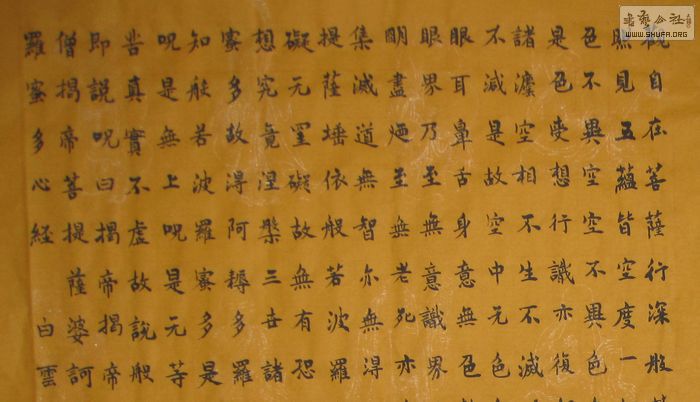 觀自在菩薩行深般
照見五蘊皆空度一
色不異空空不異色
是色受想行識亦復
諸灋空相不生不滅
不減是故空中无色
眼耳鼻舌身意無色
眼界乃至無意識界
明盡廼至無老死亦
集滅道無智亦無得
提薩埵依般若波羅
礙无罣礙故無有恐
想究竟涅槃三世諸
蜜多故得阿耨多羅
知般若波羅蜜多是
呪是無上呪是元等
苦真實不虛故說般
即說呪曰揭帝揭帝
僧揭帝菩提薩婆訶
羅蜜多心經 白雲
WWW.SHUFA.ORG